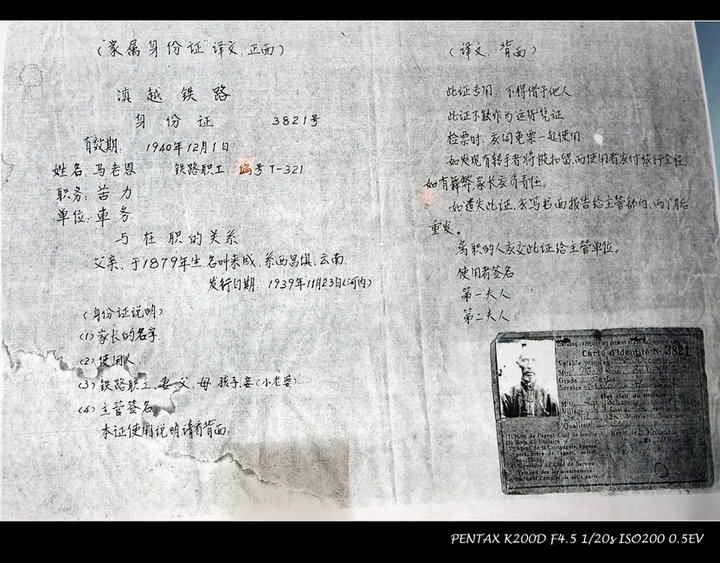 ("家属身份证"译文,正面)
滇越铁路
身份证 3821号
有效期: 1940年12月1日
姓名:马老恩 铁路职工:编号T-321
职务:苦力
单位:車务
与在职的关系
父亲,于1879年生,名叫来成,系西昌填,云南.
发行日期: 1939年11月23日(河内)
(身份证说明)
(1)家长的名字
(2)使用人
(3)铁路职工,妻,父,母,孩子,妾(小老婆)
(4)主管签名.
本证使用说明请看背面.
(译文,背面)
此证专用,不得借予他人
此证不能作为运货凭证
检票时,应同免票一起使用
如发现有转手者将被扣留,而使用者应付旅行全程
如有舞弊,家长应负责任。
如遗失此证,应写书面报告给主管部门,两个月后
重发。
离职的人应交此证给主管单位。
使用者签名
第一夫人
第二夫人
Carte d'Identité N° 3821
Grade
Service
(1) Nom de l'agent Chef de famille
PENTAX K200D F4.5 1/20s ISO200 0.5EV